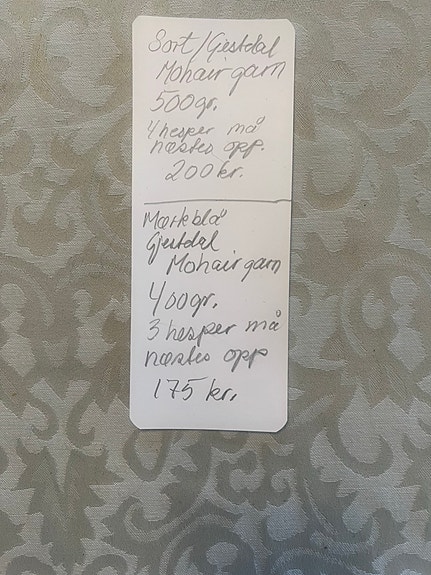 Sort/Gjestdal
Mohair garn
500gr.
4 hesper må
næstes opp.
200 kr.
Mørkeblå
Gjestdal
Mohair garn
400gr.
3 hesper må
næstes opp
175 kr.